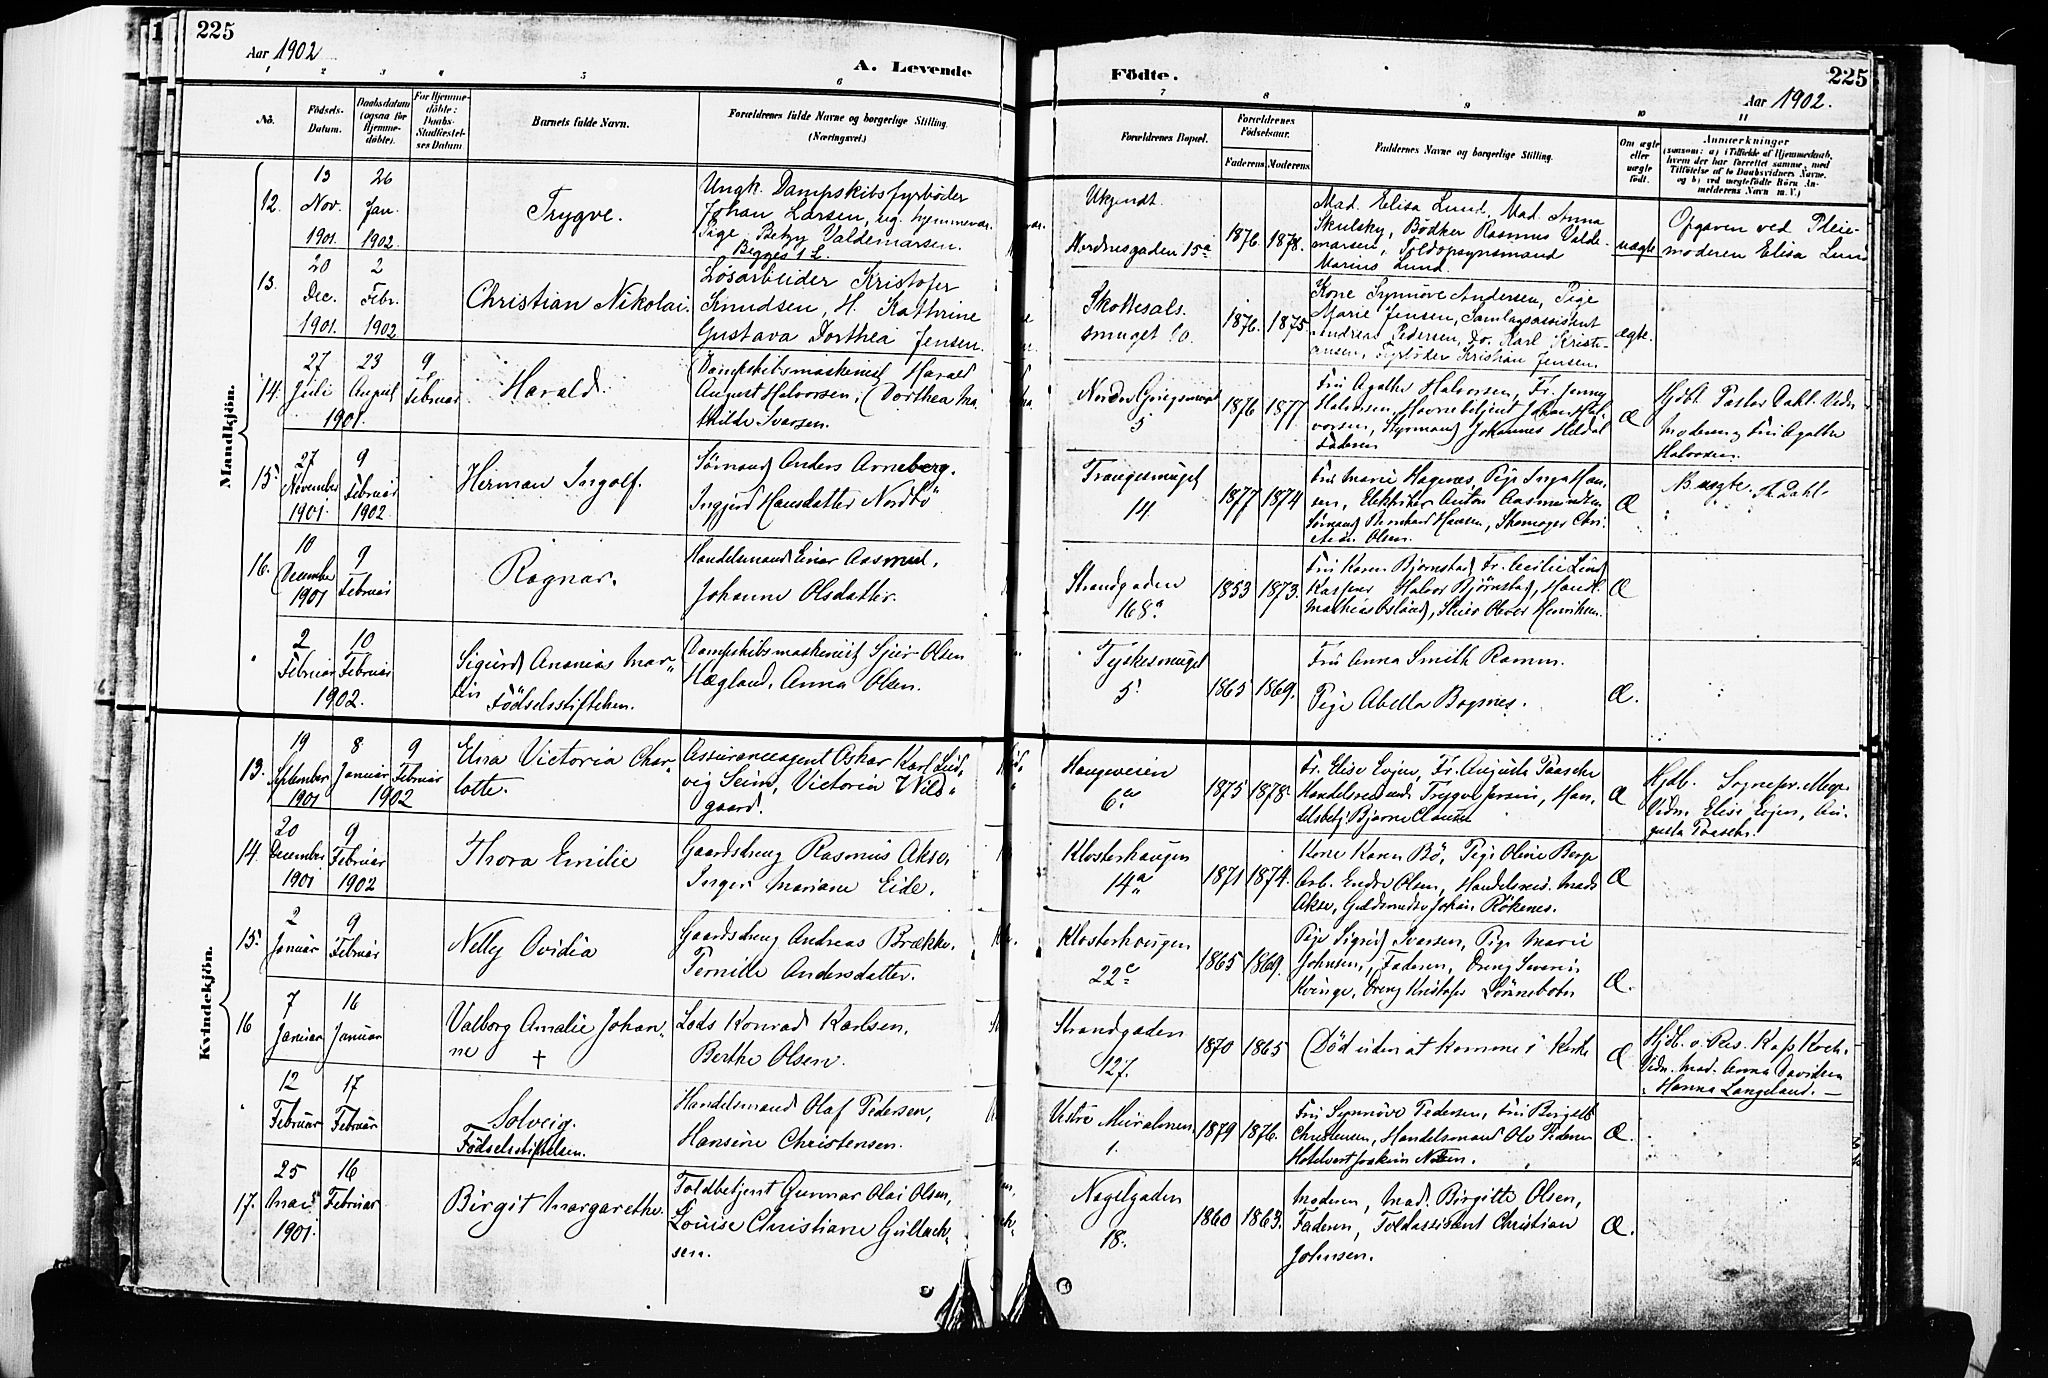 225
Aar 1902
A. Levende
Födte.
225
Aar 1902.
1
2
3
4
5
6
7
8
9
10
11
No.
Födsels-
Datum.
Daabsdatum
(ogsaa for
Hjemme-
döbte).
For Hjemme-
döbte:
Daabs-
Stadfæstel-
ses Datum
Barnets fulde Navn.
Forældrenes fulde Navne og borgerlige Stilling.
(Næringsvei.)
Forældrenes Bopæl.
Forældrenes
Födselsaar.
Faderens
Moderens
Faddernes Navne og borgerlige Stilling.
Om ægte
eller
uægte
födt.
Anmærkninger
(saasom: a) i Tilfælde af Hjemmedaab,
hvem der har forrettet samme, med
Tilföielse af to Daabsvidners Navne.
og b) ved uægtefödte Börn An-
melderens Navn m. V.)
Mandkjön.
12.
13
Nov.
1901.
26
Jan.
1902
Trygve.
Ungk. Dampskibsfyrböder
Johan Larsen, ug. hjemmevær.
Pige Betzy Valdemarsen.
Begges 1 L.
Ukjendt.
Nordnesgaden 15a
1876.
1878.
Mad. Elisa Lund, Mad. Anna
Skulsky, Bödker Rasmus Valde-
marsen, Toldopsynsmand
Marius Lund.
uægte
Opgaven ved Pleie-
moderen Elisa Lund
13.
20
Dec.
1901.
2
Febr.
1902
Christian Nikolai.
Løsarbeider Kristofer
Knudsen, H. Kathrine
Gustava Dorthea Jensen.
Skottesals.
smuget 10.
1876.
1875
Kone Synnöve Andersen, Pige
Marie Jensen, Samlagsassistent
Andreas Pedersen, Do. Karl Kristi-
ansen, Fyrböder Kristian Jensen.
ægte.
14.
27
Juli
23
August
1901.
9
Februar
Harald.
Dampskibsmaskinist Harald
August Halvorsen, Dorthea Ma
thilde Iversen.
Nordre Griegsmuget
5
1876
1877
Fru Agathe Halvorsen, Fr. Jenny
Halvorsen, Havnebetjent Johan Hal-
vorsen, Styrmand Johannes Heldal
Faderen
Æ
Hjdbt. Pastor Dahl. Vidn
Moderen og Fru Agathe
Halvorsen.
15.
27
November
1901.
9
Februar
1902.
Herman Ingolf.
Sömand Anders Arneberg.
Ingjerd Hansdatter Nordbö
Trangesmuget
14
1877
1874
Fru Marie Hagenæs, Pige Inga Han-
sen, Elektriker Anton Aasmundsen
Sömand Bernhard Hansen, Skomager Chri-
stian Olsen.
Æ
N. Dahl.
16.
10
December
1901
9
Februar
Ragnar.
Handelsmand Einar Aasmul,
Johanne Olsdatter.
Strandgaden
168a
1853
1873.
Fru Karen Björnstad, Fr. Cecilie Lund
Kasserer Halvor Björnstad, Handl.
Mathias Osland, Skier Oliver Henriksen.
Æ
2
Februar
10
Februar
1902.
Sigurd Ananias Mar-
tin
Födselsstiftelsen.
Dampskibsmaskinist Sjur Olsen
Hægland, Anna Olsen.
Tyskesmuget
5.
1865
1869.
Fru Anna Smith Ramm.
Pige Abella Bognes.
Æ.
Kvindekjön.
13.
19
September
1901
8
Januar
9
Februar
1902
Elna Victoria Char-
lotte.
Assuranceagent Oskar Karl Lud-
vig Seim, Victoria Wild-
gaard.
Haugeveien
6a
1875
1878.
Fr. Elise Evjen, Fr. Augusta Paasche
Handelsreisende Trygve Jersin, Han-
delsbetj. Bjarne Clausen
Æ
Hjdb. Sognepr. Meyer
Vidn. Elise Evjen, Au-
gusta Paasche.
14.
20
December
1901
9
Februar
1902
Thora Emilie
Gaardsdreng Rasmus Akse,
Inger Mariane Eide.
Klosterhaugen
14a
1871
1874.
Kone Karen Bö, Pige Oline Berge
Arb. Endre Olsen, Handelsreis. Mads
Akse, Guldsmedsv. Johan Rökenes.
Æ
15.
2
Januar
9
Februar
Nelly Ovidia
Gaardsdreng Andreas Brække.
Pernille Andersdatter.
Klosterhaugen
22c
1865
1869.
Pige Sigrid Iversen, Pige Marie
Johnsen, Faderen, Dreng Severin
Kvinge, Dreng Kristofer Lönnebotn
Æ.
16
7
Januar
16
Januar
Valborg Amalie Johan-
ne
†
Lods Konrad Karlsen,
Berthe Olsen.
Strandgaden
127.
1870
1865
Död uden at komme i Kirke
Æ
Hjdb. v. Res. Kap. Koch.
Vidn. Mad. Anna Davidsen
Hanna Langeland. —
12
Februar
17
Februar
Solveig.
Födselsstiftelsen.
Handelsmand Olaf Pedersen,
Hansine Christensen.
Vestre Muralmen.
1.
1879
1876.
Fru Synnöve Pedersen, Fru Bergitte
Christensen, Handelsmand Ole Pedersen
Hotelvert Joakim Nilsen.
Æ.
17.
25
Mai
1901.
16
Februar
Birgit Margarethe.
Toldbetjent Gunnar Olai Olsen,
Louise Christiane Gullach-
sen.
Nagelgaden
18.
1860
1863.
Moderen, Mad. Birgitte Olsen,
Faderen, Toldassistent Christian
Johnsen.
Æ.